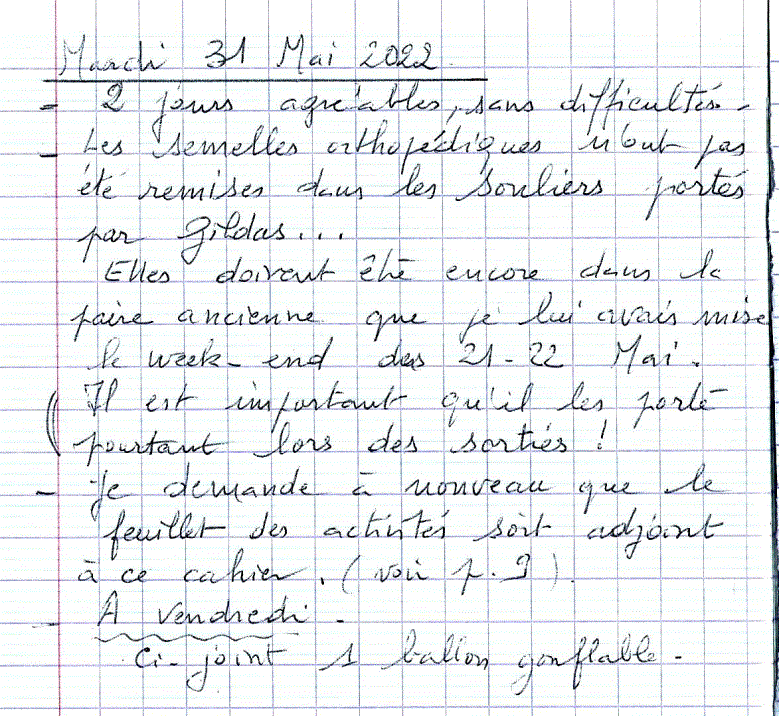 Mardi 31 Mai 2022
- 2 jours agréables, sans difficultés.
- Les semelles orthopédiques n'ont pas
été remises dans les souliers portés
par Gildas...
Elles doivent être encore dans la
paire ancienne que je lui avais mise
le week-end des 21-22 Mai.
(Il est important qu'il les porte
pourtant lors des sorties !
- Je demande à nouveau que le
feuillet des activités soit adjoint
à ce cahier. (voir p. 9).
- A vendredi.
Ci-joint 1 ballon gonflable.